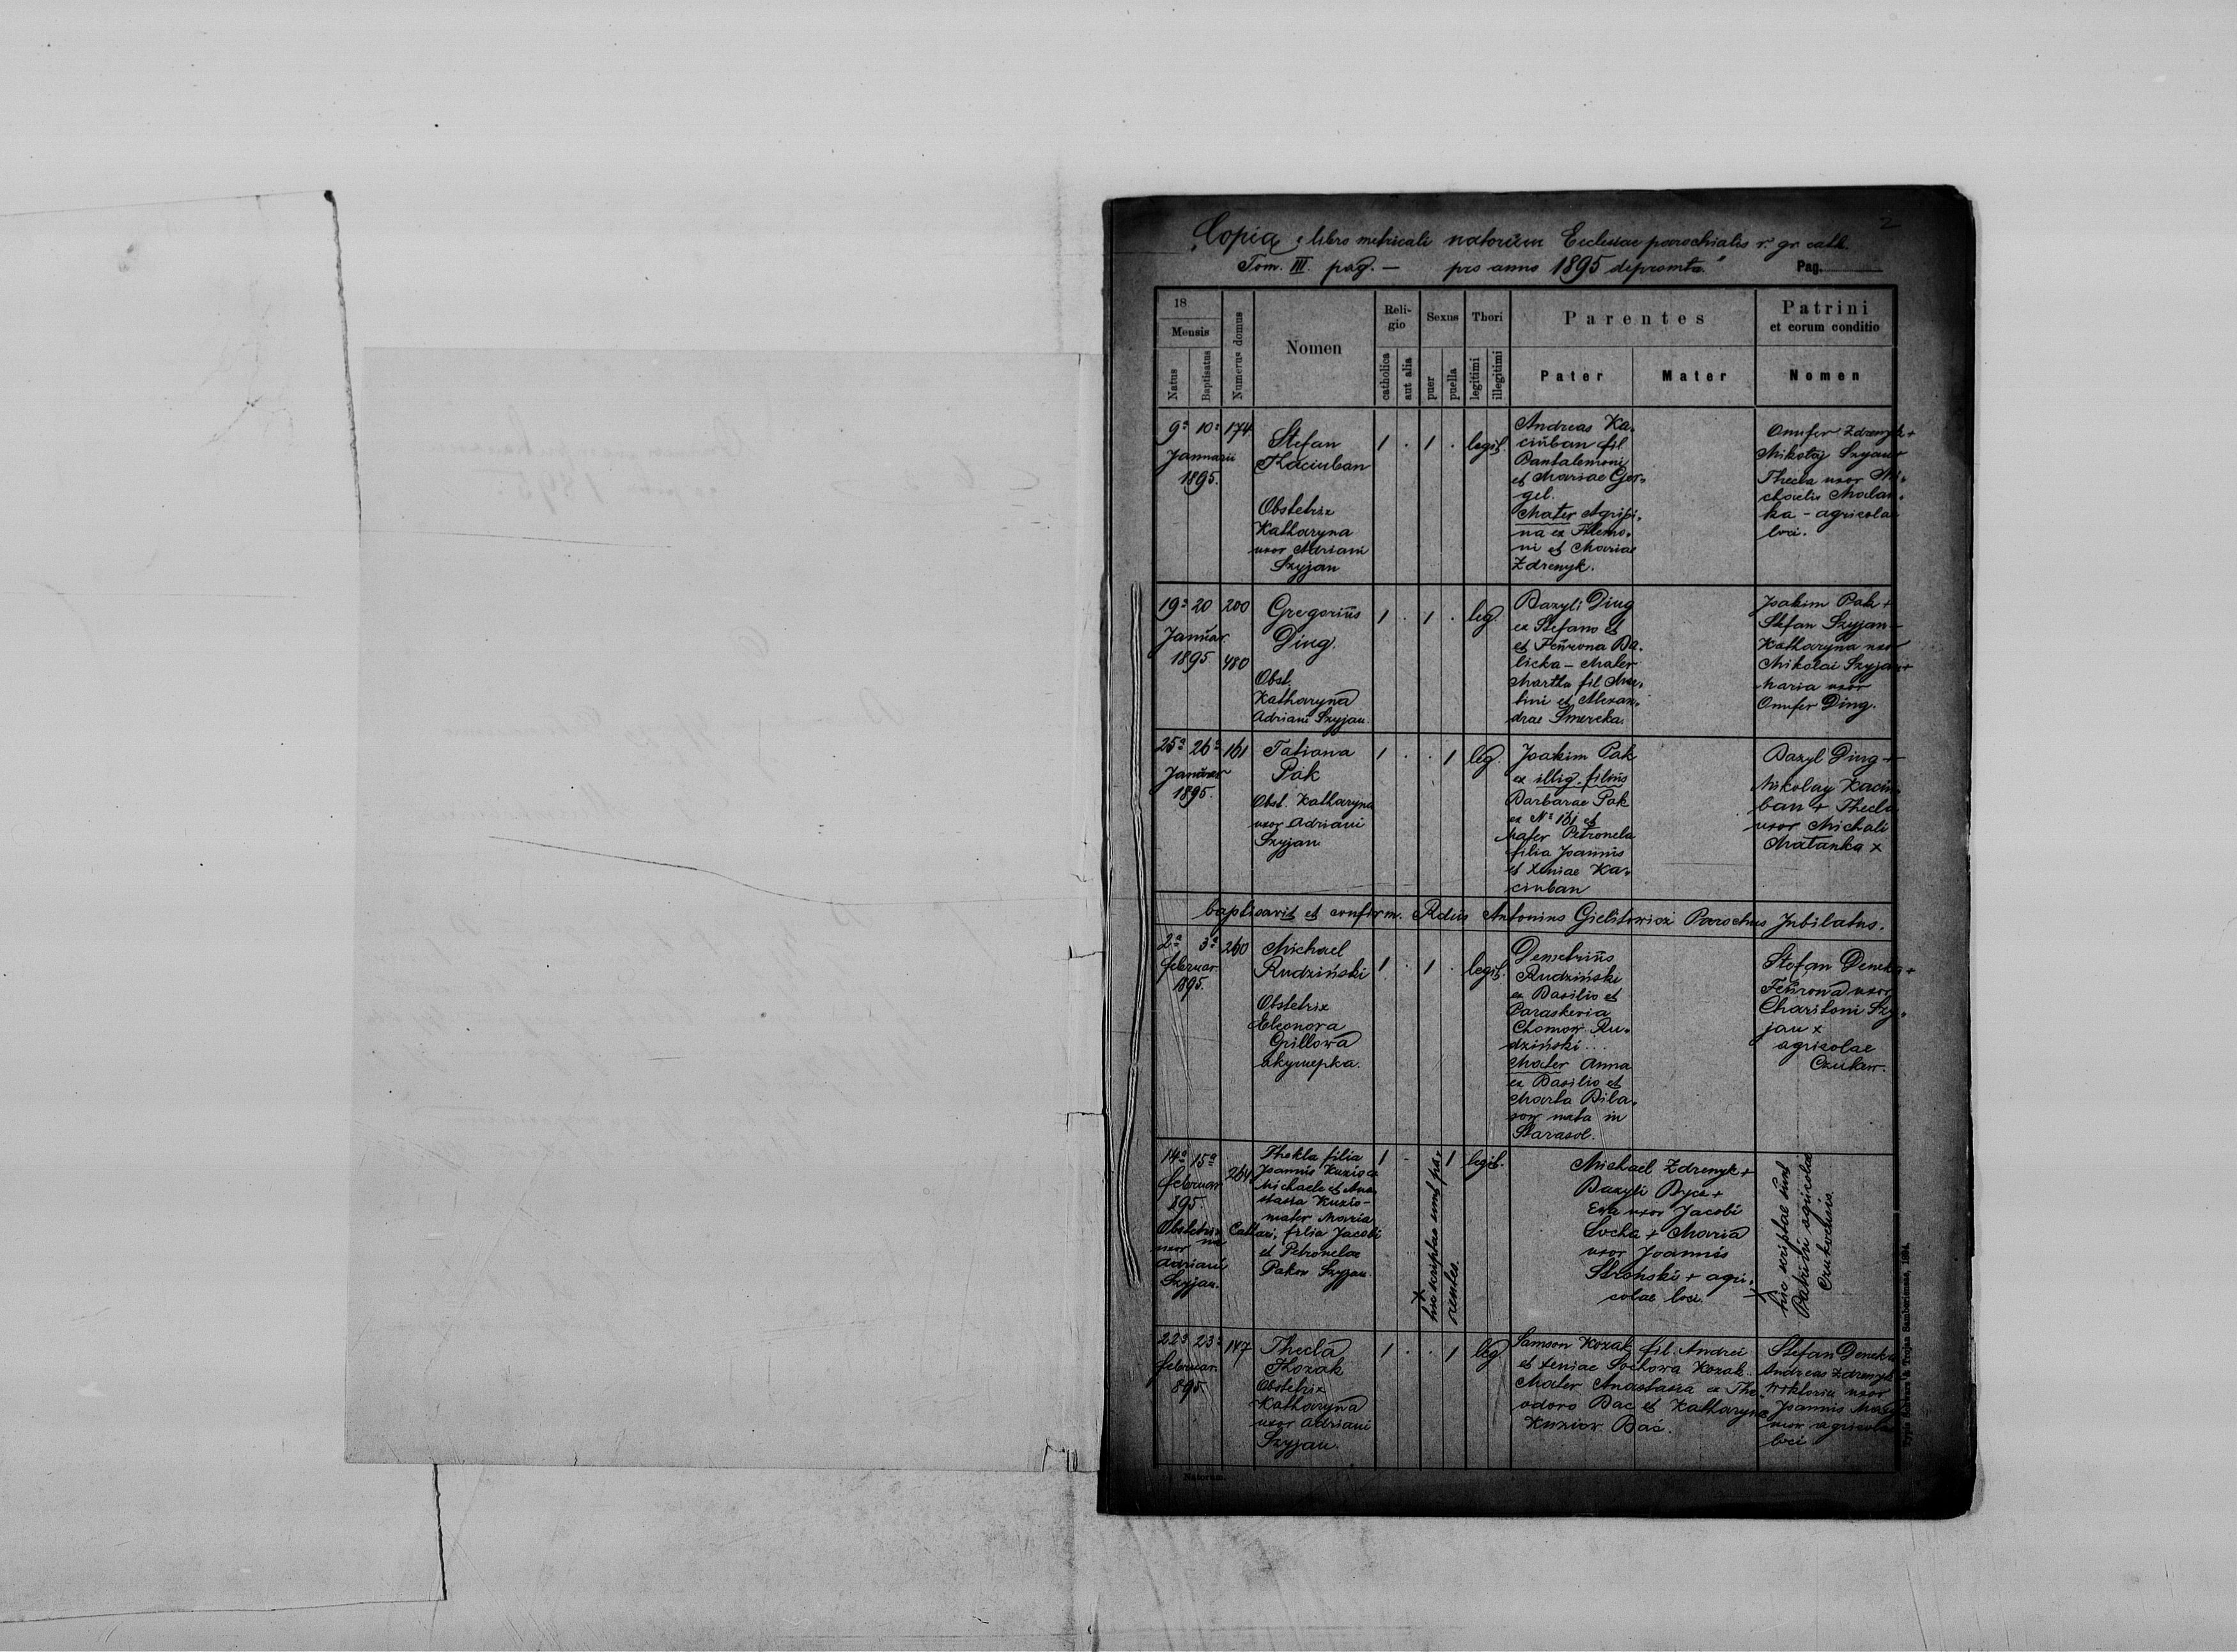 2
Copia e libro metricali natorum Ecclesiae parochialis r. gr. cath.
Tom. III. pag. — pro anno 1895 depromta."
Pag.
18
Mensis
Natus
Baptisatus
Numerus domus
Nomen
Reli-
gio
catholica
aut alia
Sexus
puer
puella
Thori
legitimi
illegitimi
Parentes
Pater
Mater
Patrini
et eorum conditio
Nomen
9a 10a 174
Januarii
1895.
Stefan
Kaciuban
Obstetrix
Katharyna
uxor Adriani
Szyjan
1 . 1 . legit.
Andreas Ka-
ciuban fil
Pantalemoni
et Mariae Gor-
gel.
Mater Agripi-
na ex Filemo-
ni et Mariae
Zdrenyk.
Onufer Zdrenyk +
Mikołaj Szyjan
Thecla uxor Mi-
chaelis Malan-
ka - agricolae
loci.
19a 20 200
Januar.
1895 480
Gregorius
Ding.
Obst.
Katharyna
Adriani Szyjan
1 . 1 . leg.
Bazyli Ding
ex Stefano et
et Feurona Ba-
licka - Mater
Martha fil
et Alexan-
drae Smereka.
Joakim Pak +
Stefan Szyjan
Katharyna uxor
Mikolai Szyjan +
Maria uxor
Onufer Ding.
25a 26a 161
Januar
1895.
Tatiana
Pak
Obst. Katharyna
uxor Adriani
Szyjan
1 . . 1 leg.
Joakim Pak
ex illig. filius
Barbarae Pak
ex No 161 et
Mater Petronela
filia Joannis
et Xeniae Ka-
ciuban
Bazyl Ding +
Mikolay Kaciu-
ban + Thecla
uxor Michali
Matanka x
baptisavit et confirm. Rdus Antonius Gielitowicz Parochus Jubilatus.
2a 3a 260
februar.
1895.
Michael
Rudziński
Obstetrix
Eleonora
Grillowa
акушерка.
1 . 1 . legit.
Demetrius
Rudziński
ex Basilio et
Paraskevia
Chomow Ru-
dziński...
Mater Anna
ex Basilio et
Marta Bila-
sow nata in
Starasol.
Stefan Deneka +
Feurona uxor
Charitoni Szy-
jan x
agricolae
Czukew.
14a 15a
februar
895
264
Thekla filia
Joannis Kuzio ex
Michaele et Ana-
stasia Kuzio -
mater Maria
filia Jacobi
et Petronelae
Pakow Szyjan.
Obstetrix
uxor
Adriani
Szyjan.
1 . 1 legit.
x
hic scriptae sunt pa-
rentes.
Michael Zdrenyk +
Bazyli Byce +
Eva uxor Jacobi
Socha + Maria
uxor Joannis
Stroński + agri-
colae loci.
x
hic scriptae sunt
Patrini agricolae
Czukwensis.
22a 23a 147
februar.
895.
Thecla
Kozak
Obstetrix
Katharyna
uxor Adriani
Szyjan.
1 . . 1 leg
Samson Kozak fil. Andrei
et Xeniae Sochowa Kozak
Mater Anastasia ex The-
odoro Bac et Katharyna
Kuziow Bać.
Stefan Deneka
Andreas Zdrenyk
Wiktoria uxor
Joannis
uxor agricolae
loci
Natorum.
Typis Schwarz & Trojan Samboriensis, 1894.